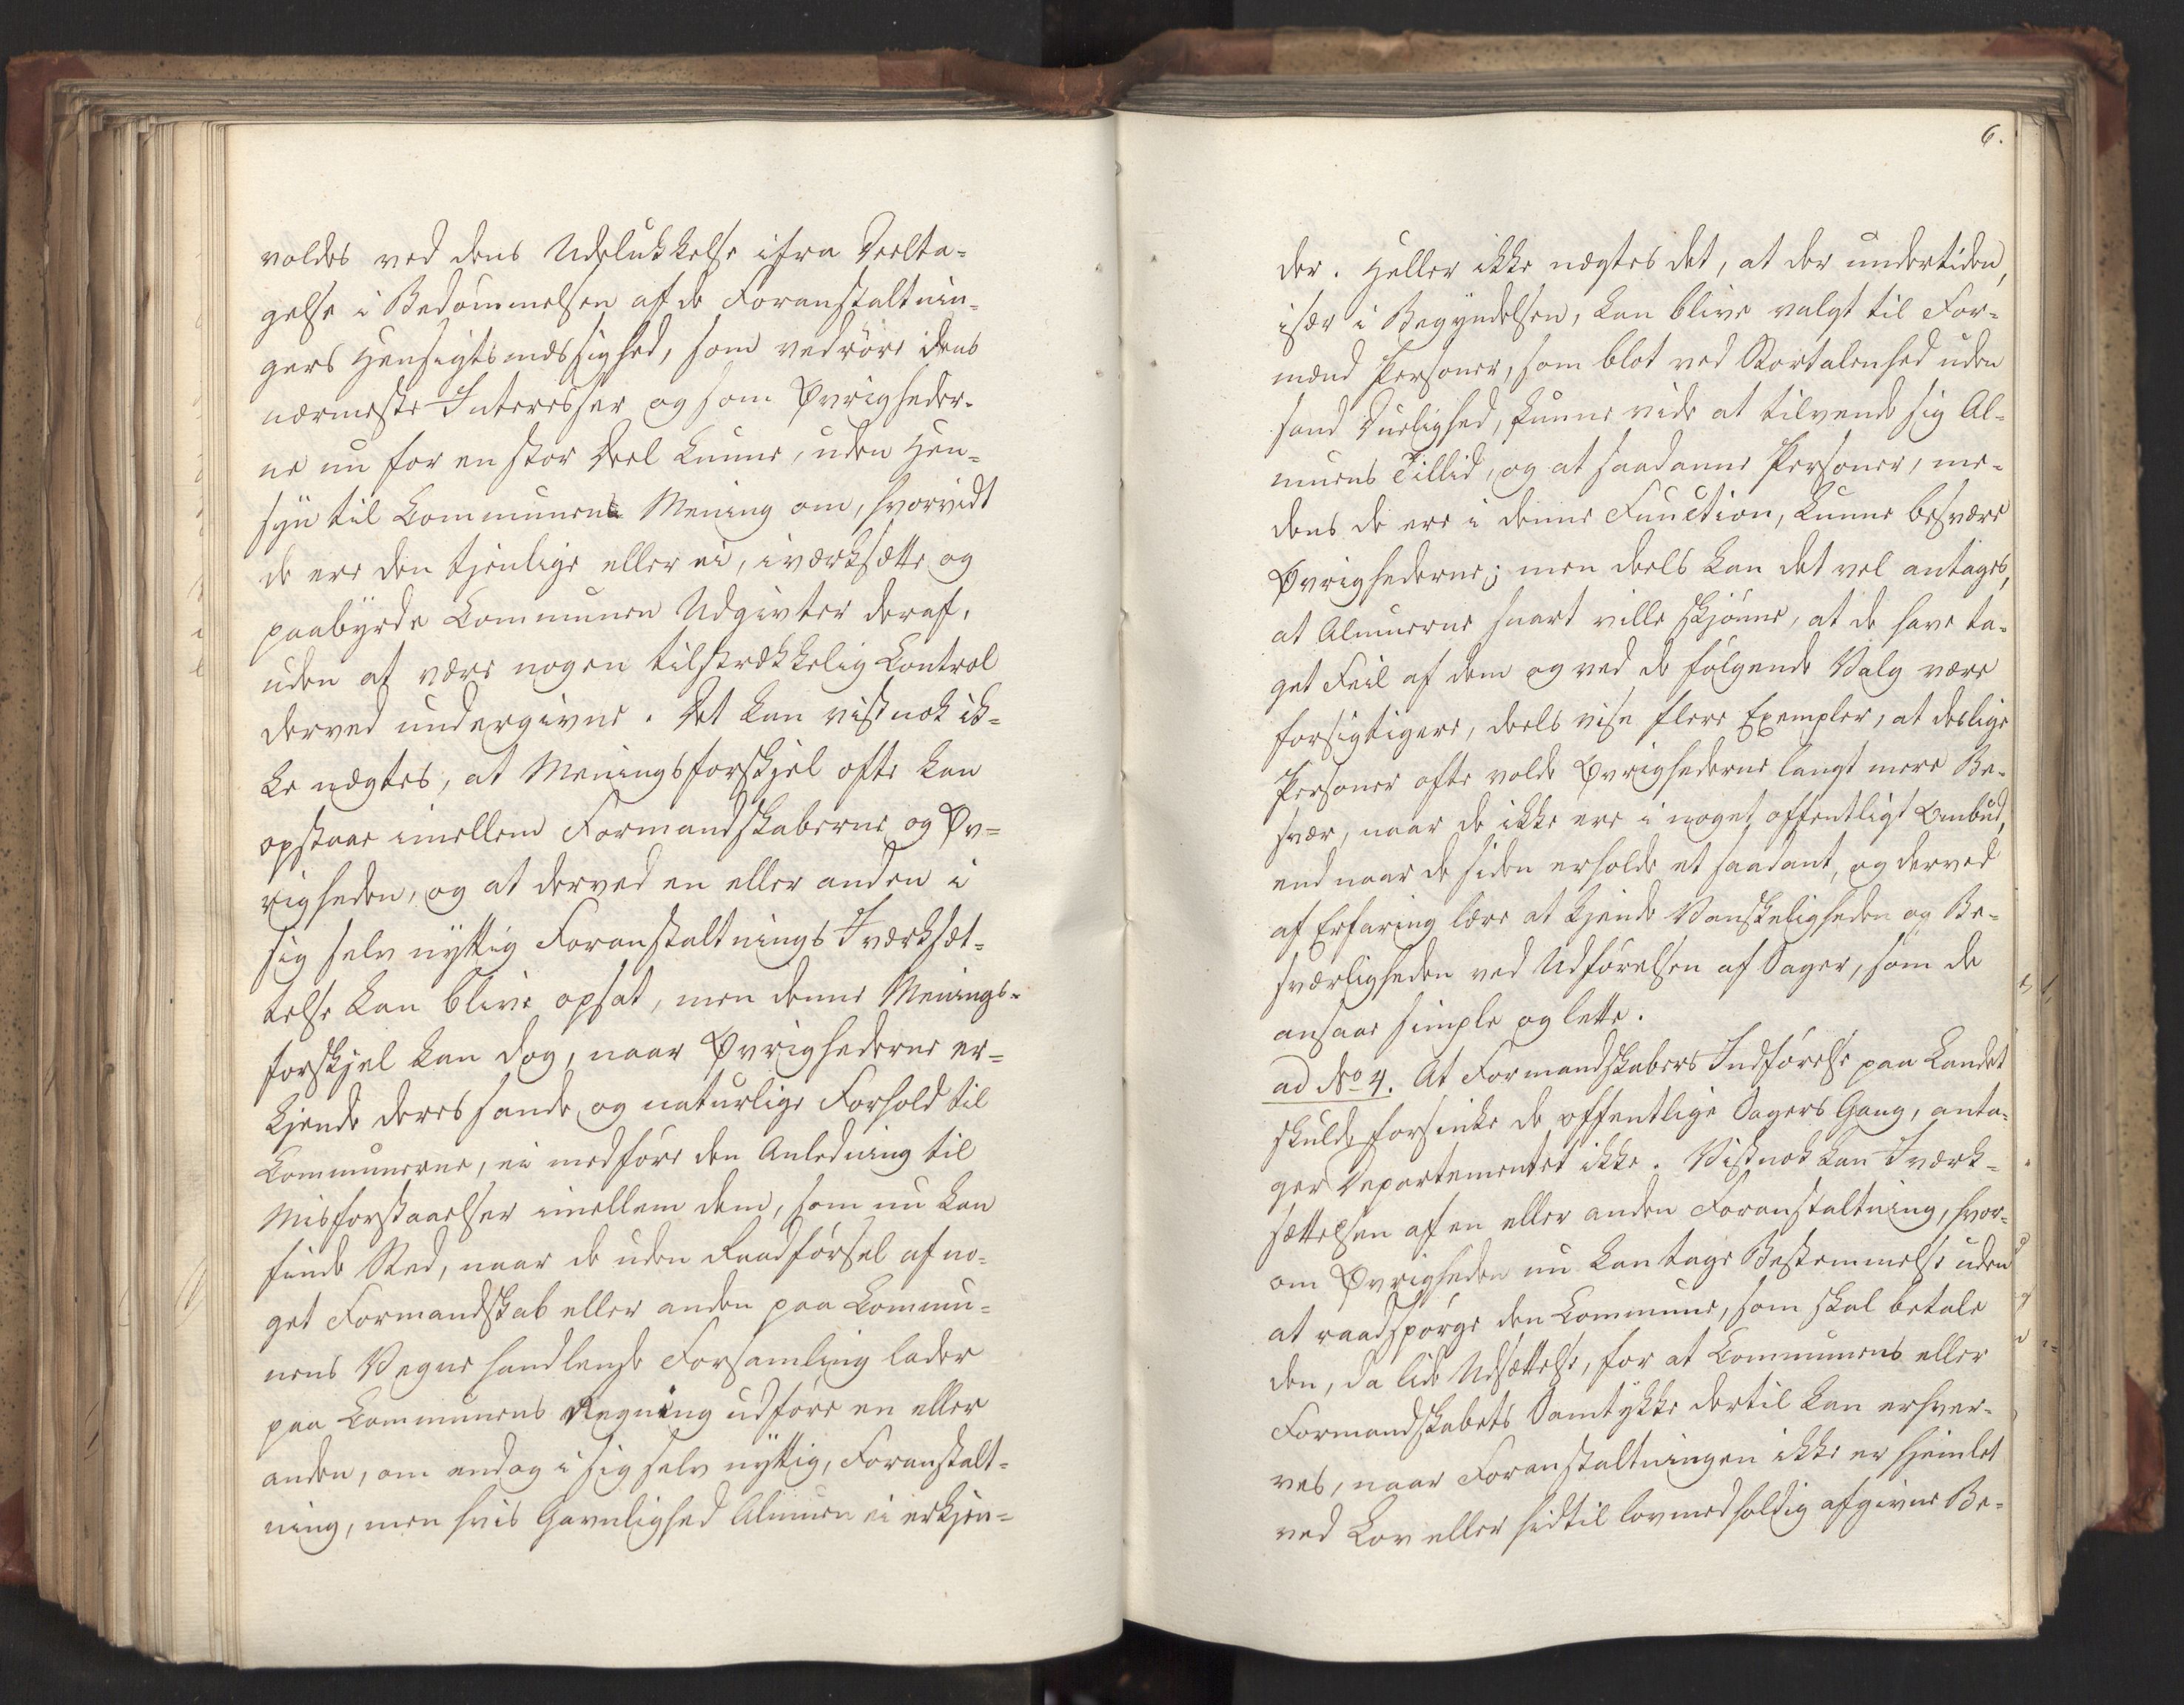 voldes ved dens Udelukkelse ifra Deelta-
gelse i Bedömmelsen af de Foranstaltnin-
gers Hensigtsmæssighed, som vedröre dens
nærmeste Interesser og som Øvrigheder-
ne nu for en stor Deel kunne, uden Hen-
syn til Communens Mening om, hvorvidt
de ere den tjenlige eller ei, iværksætte og
paabyrde Communen Udgivter deraf,
uden at være nogen tilstrækkelig Control
derved undergivne. Det kan vistnok ik-
ke nægtes, at Meningsforskjel ofte kan
opstaae imellem Formandskaberne og Øv-
righeden, og at derved en eller anden i
sig selv nyttig Foranstaltnings Iværksæt-
telse kan blive opsat, men denne Menings-
forskjel kan dog, naar Øvrighederne er-
kjende deres sande og naturlige Forhold til
Communerne, ei medföre den Anledning til
Misforstaaelser imellem dem, som nu kan
finde Sted, naar de uden Raadförsel af no-
get Formandskab eller anden paa Commu-
nens Vegne handlende Forsamling lader
paa Communens Regning udföre en eller
anden, om endog i sig selv nyttig, Foranstalt-
ning, men hvis Gavnlighed Almuen ei erkjen-
6.
der. Heller ikke nægtes det, at der undertiden,
især i Begyndelsen, kan blive valgt til For-
mænd Personer, som blot ved Stortalenhed uden
sand Duelighed, kunne vide at tilvende sig Al-
muens Tillid, og at saadanne Personer, me-
dens de ere i denne Function, kunne besvære
Øvrighederne; men deels kan det vel antages,
at Almuerne snart ville skjönne, at de have ta-
get Feil af dem og ved de fölgende Valg være
forsigtigere, deels vise flere Exempler, at deslige
Personer ofte volde Øvrighederne langt mere Be-
svær, naar de ikke ere i noget offentligt Ombud,
end naar de siden erholde et saadant, og derved
af Erfaring lære at kjende Vanskeligheden og Be-
sværligheden ved Udförelsen af Sager, som de
ansaae simple og lette.
ad No 4. At Formandskabers Indförelse paa Landet
skulde forsinke de offentlige Sagers Gang, anta-
ger Departementet ikke. Vistnok kan Iværk-
sættelsen af en eller anden Foranstaltning, hvor-
om Øvrigheden nu kan tage Bestemmelse uden
at raadspörge den Commune, som skal betale
den, da lide Udsættelse, for at Communens eller
Formandskabets Samtykke dertil kan erhver-
ves, naar Foranstaltningen ikke er hjemlet
ved Lov eller hidtil lovmedholdig afgivne Be-